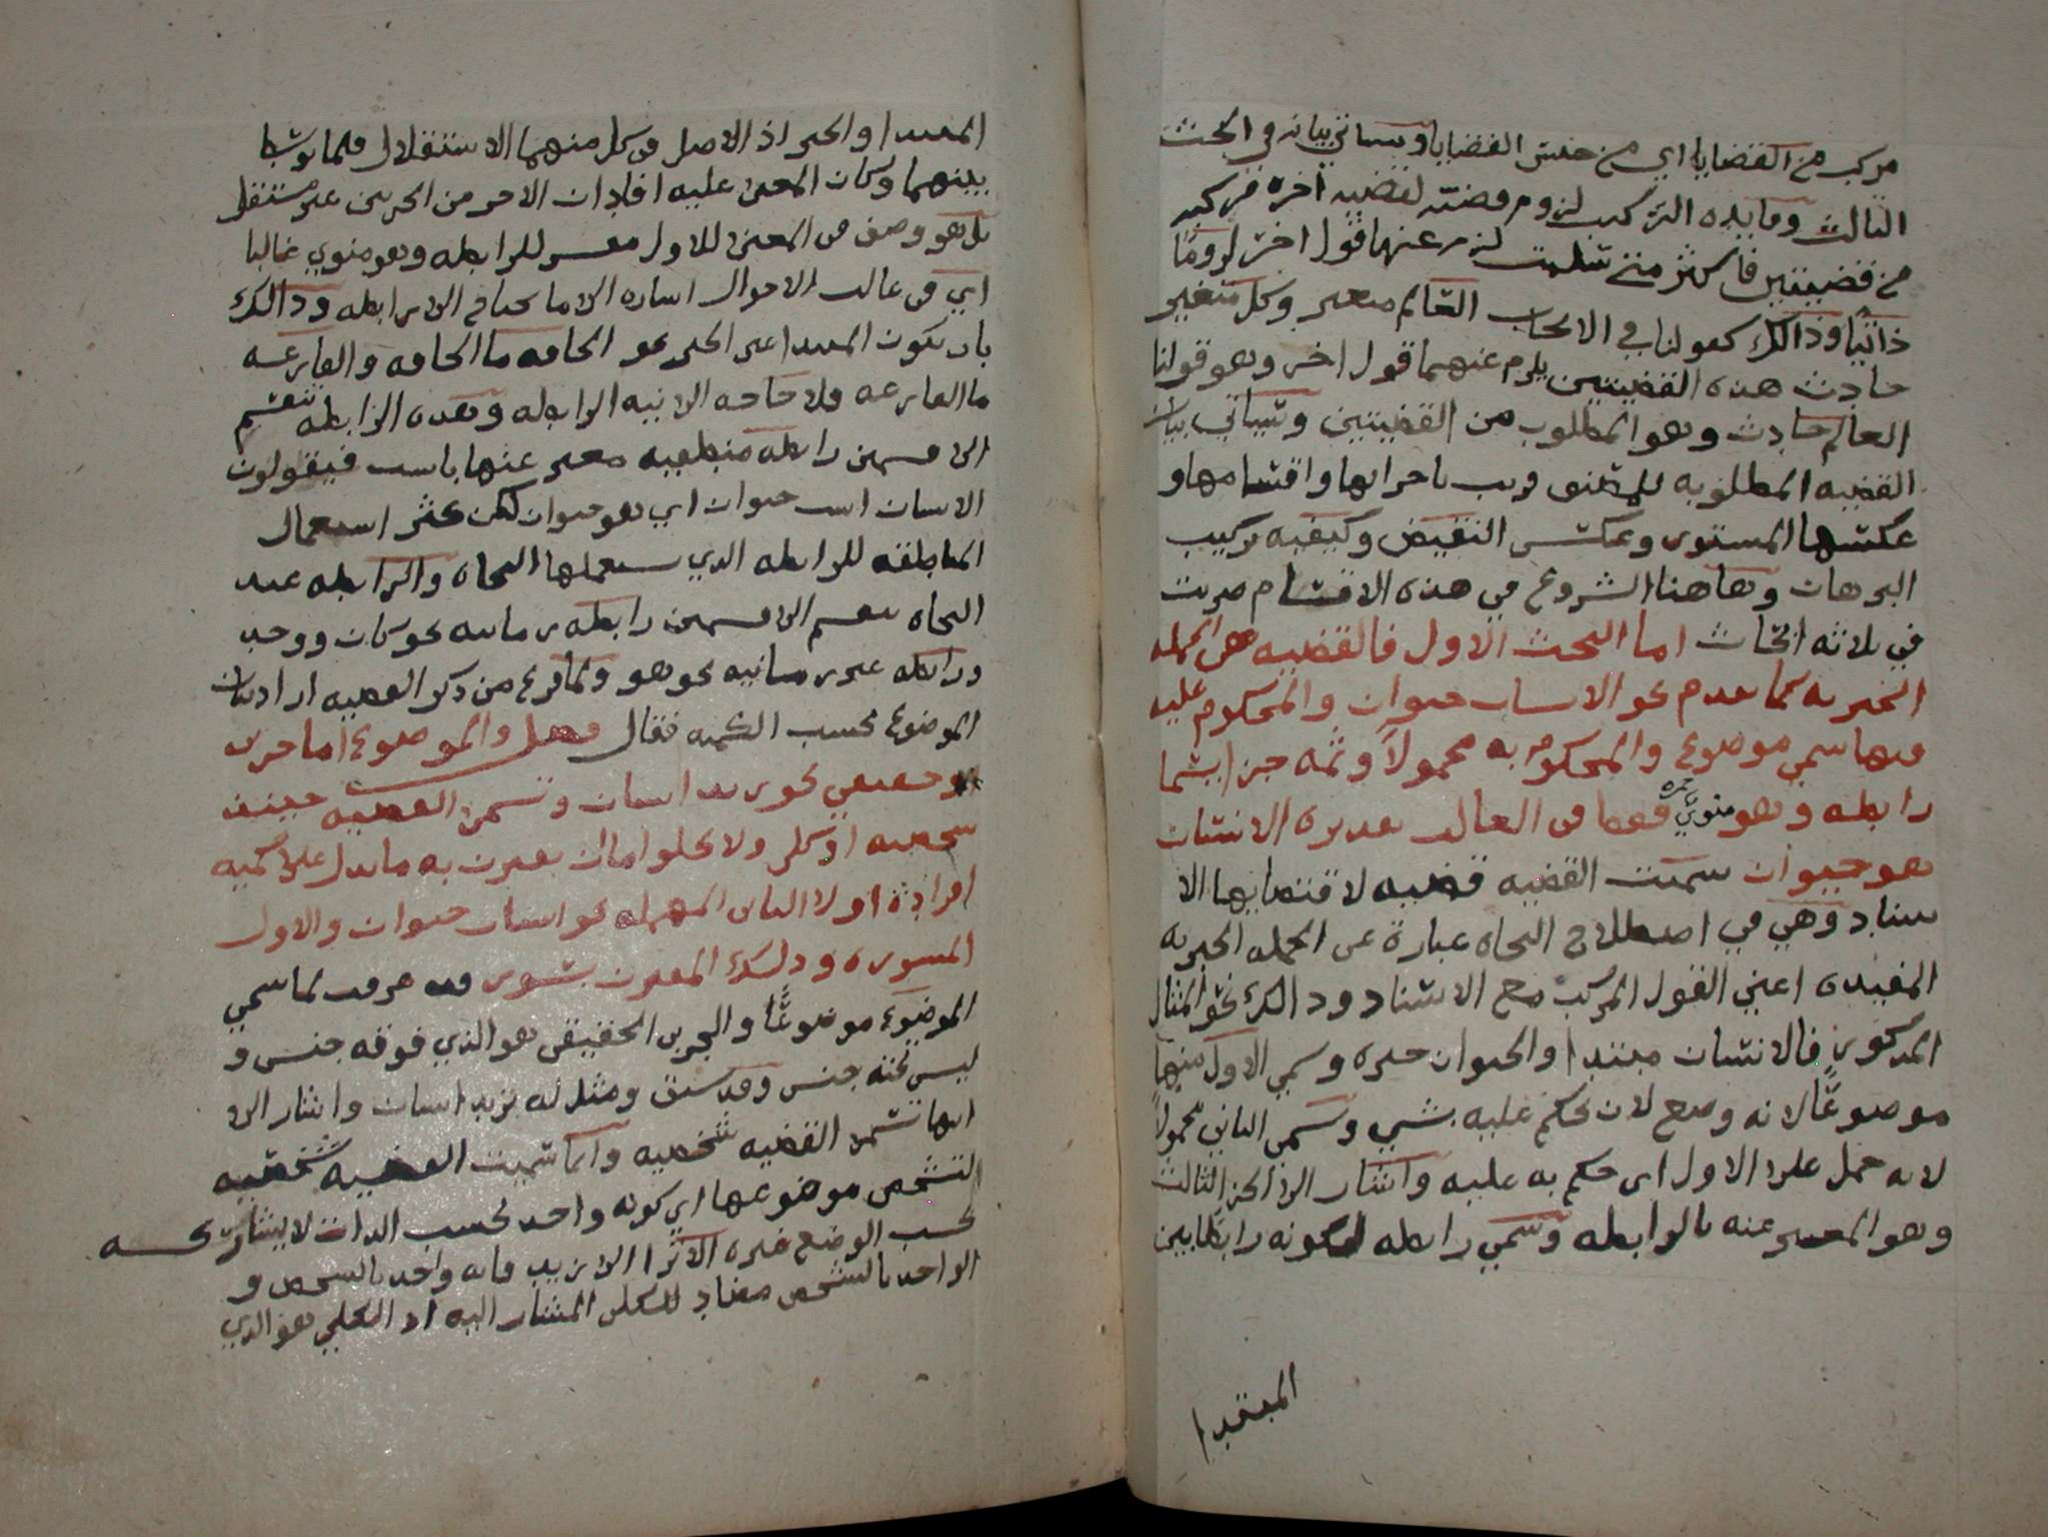 مركب من القضايا اي من جنس القضايا وسياتي بيانه في البحث
الثالث وفايده التركيب لزوم قضيه لقضيه اخره فتركبه
من قضيتين فاكثر متى سلمت لزم عنهما قول اخر لزومًا
ذاتيًا وذالك كقولنا في الايجاب العالم متغير وكل متغير
حادث هذه القضيتين يلزم عنهما قول اخر وهو قولنا
العالم حادث وهو المطلوب من القضيتين وسياتي بيان
القضيه المطلوبه باجزايها واقسامها و
عكسها المستوى وعكس النقيض وكيفيه تركيب
البرهان وهاهنا الشروع في هذه الاقسام
في ثلاثه ابحاث اما البحث الاول فالقضيه هى الجمله
الخبريه كما تقدم نحو الانسان حيوان والمحكوم عليه
فيها سمي موضوع والمحكوم به محمولاً وثمه جزا يسما
رابطه وهو منوي فى الغالب تقديره الانسان
هو حيوان سميت القضيه قضيه لاقتضايها الا
سناد وهي في اصطلاح النحاه عبارة عن الجمله الخبريه
المفيده اعني القول المركب مع الاسناد وذالك نحو المثال
المذكور فالانسان مبتدا والحيوان خبره وسمي الاول منهما
موضوعًا لانه وضع لان يحكم عليه بشي وسمى الثاني محمولا
لانه حمل على الاول اى حكم به عليه واشار الى الجز الثالث
وهو المعبر عنه بالرابطه وسمي رابطه لكونه رابطا بين
المبتدا
المبتدا والخبر اذ الاصل فى كل منهما الاستقلال فلما توسط
بينهما وكان المعنى عليه افاد ان الاخر من الجزئين غير مستقل
بل هو وصف فى المعنى للاول مفسر للرابطه وهو منوي غالبا
اي فى غالب الاحوال اشاره الى ما يحتاج الى رابطه وذالك
بان يكون المبتدا عين الخبر نحو الحاقه ما الحاقه والقارعه
ما القارعه فلا حاجه الى نيه الرابطه وهذه الرابطه تنقسم
الى قسمين رابطه منطقيه معبر عنها باست فيقولون
الانسان است حيوان اي هو حيوان لكن كثر استعمال
المناطقه للرابطه الذي يستعملها النحاه والرابطه عند
النحاه تنقسم الى قسمين رابطه زمانيه نحو كان ووجد
ورابطه غير زمانيه نحو هو ولما فرغ من ذكر القضيه اراد بيان
الموضوع بحسب الكميه فقال فصل والموضوع اما جزي
حقيقي نحو زيد انسان وتسمى القضيه حينئذ
شخصيه او كلي ولا يخلوا اما ان يقترن به ما يدل على كميه
افراده او لا الثانى المهمله نحو انسان حيوان والاول
المسوره وذلك المقترن بسور وقد عرفت لما سمي
الموضوع موضوعًا والجزيى الحقيقى هو الذي فوقه جنس و
ليس تحته جنس وقد سبق ومثل له بزيد انسان واشار الى
انها تسمى القضيه شخصيه وانما سميت القضيه شخصيه
لتشخص موضوعها اي كونه واحد بحسب الذات لا يشاركه
بحسب الوضع غيره الا ترا الى زيد فانه واحد بالشخص و
الواحد بالشخص مضاد للكلى المشار اليه اذ الكلي هو الذي